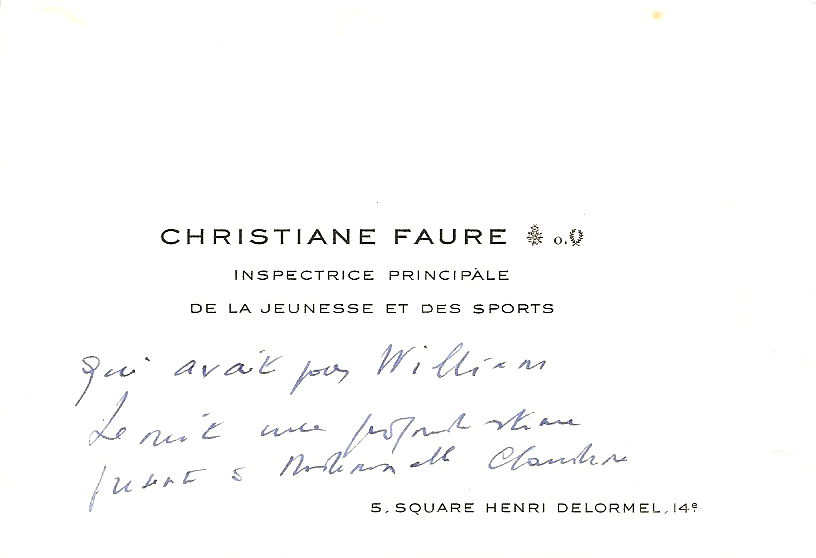 CHRISTIANE FAURE o.
INSPECTRICE PRINCIPALE
DE LA JEUNESSE ET DES SPORTS
qui avait pour William
Lemit une profonde estime
présente à Mademoiselle
5, SQUARE HENRI DELORMEL, 14e